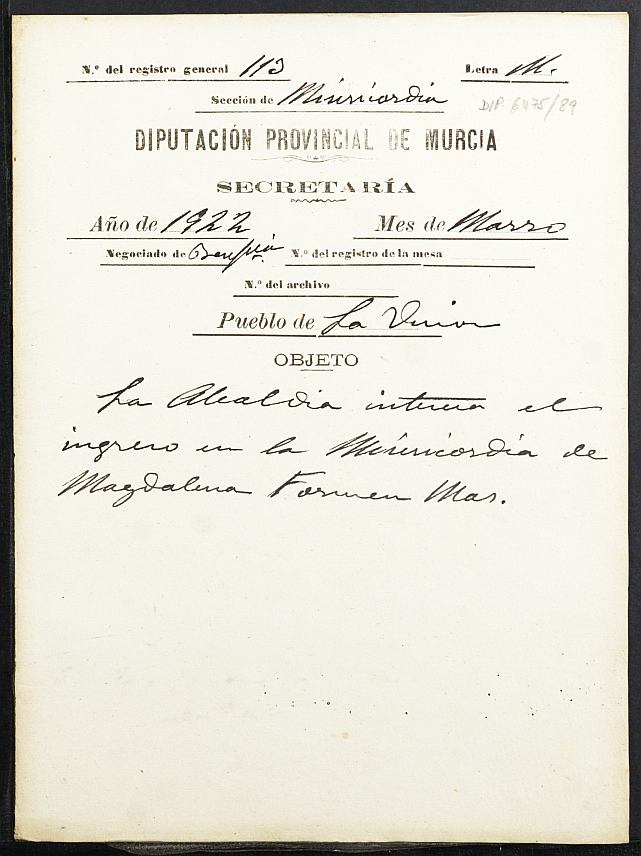 N.º del registro general 113 Letra M.
Sección de Misericordia
DIP. 6475/89
DIPUTACIÓN PROVINCIAL DE MURCIA
SECRETARÍA
Año de 1922 Mes de Marzo
Negociado de Benefcia N.º del registro de la mesa
N.º del archivo
Pueblo de La Union
OBJETO
La Alcaldia interesa el
ingreso en la Misericordia de
Magdalena Mas.